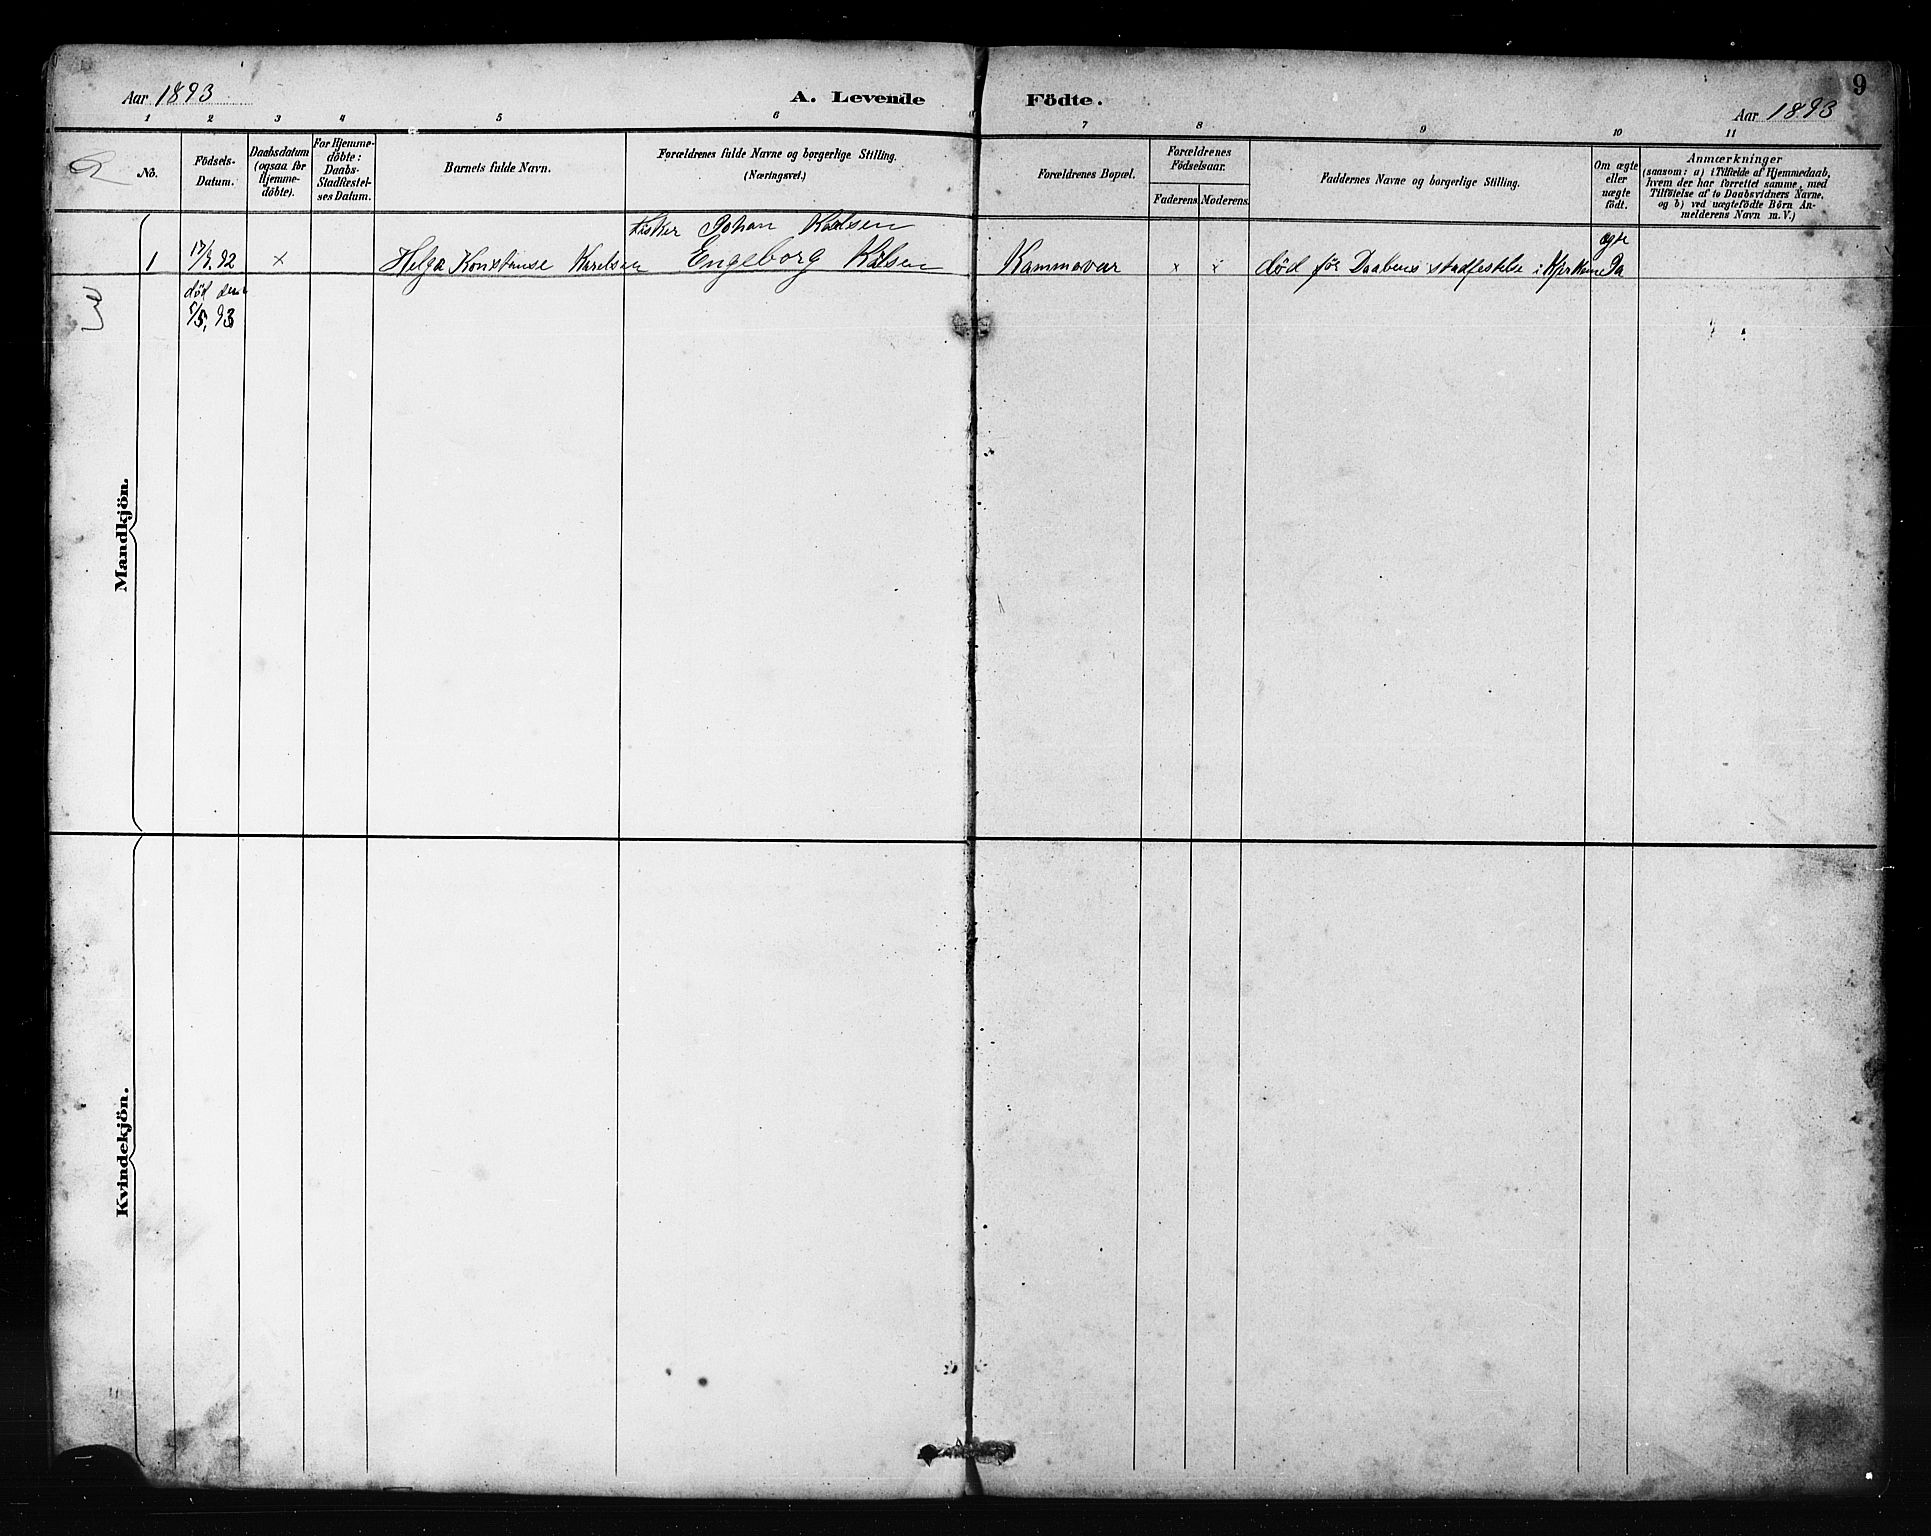 9
Aar 1893
A. Levende Födte.
Aar 1893
1 2 3 4 5 6 7 8 9 10 11
No.
Födsels-
Datum.
Daabsdatum
(ogsaa for
Hjemme-
döbte).
For Hjemme-
döbte:
Daabs-
Stadfestel-
ses Datum.
Barnets fulde Navn.
Forældrenes fulde Navne og borgerlige Stilling.
(Næringsvei.)
Forældrenes Bopæl.
Forældrenes
Födselsaar.
Faderens. Moderens.
Faddernes Navne og borgerlige Stilling.
Om ægte
eller
uægte
födt.
Anmærkninger
(saasom: a) i Tilfælde af Hjemmedaab,
hvem der har forrettet samme, med
Tilföielse af to Daabsvidners Navne,
og b) ved uægtefödte Börn An-
melderens Navn m.V.)
Fisker Johan Kalsen
1 92 x Helga Konstanse Karelsen Engeborg Kalsen Kammavær x x død før Daabens stadfestelse i Kjerken Ja
ægte
død den
5/5, 93
Mandkjön.
Kvindekjön.